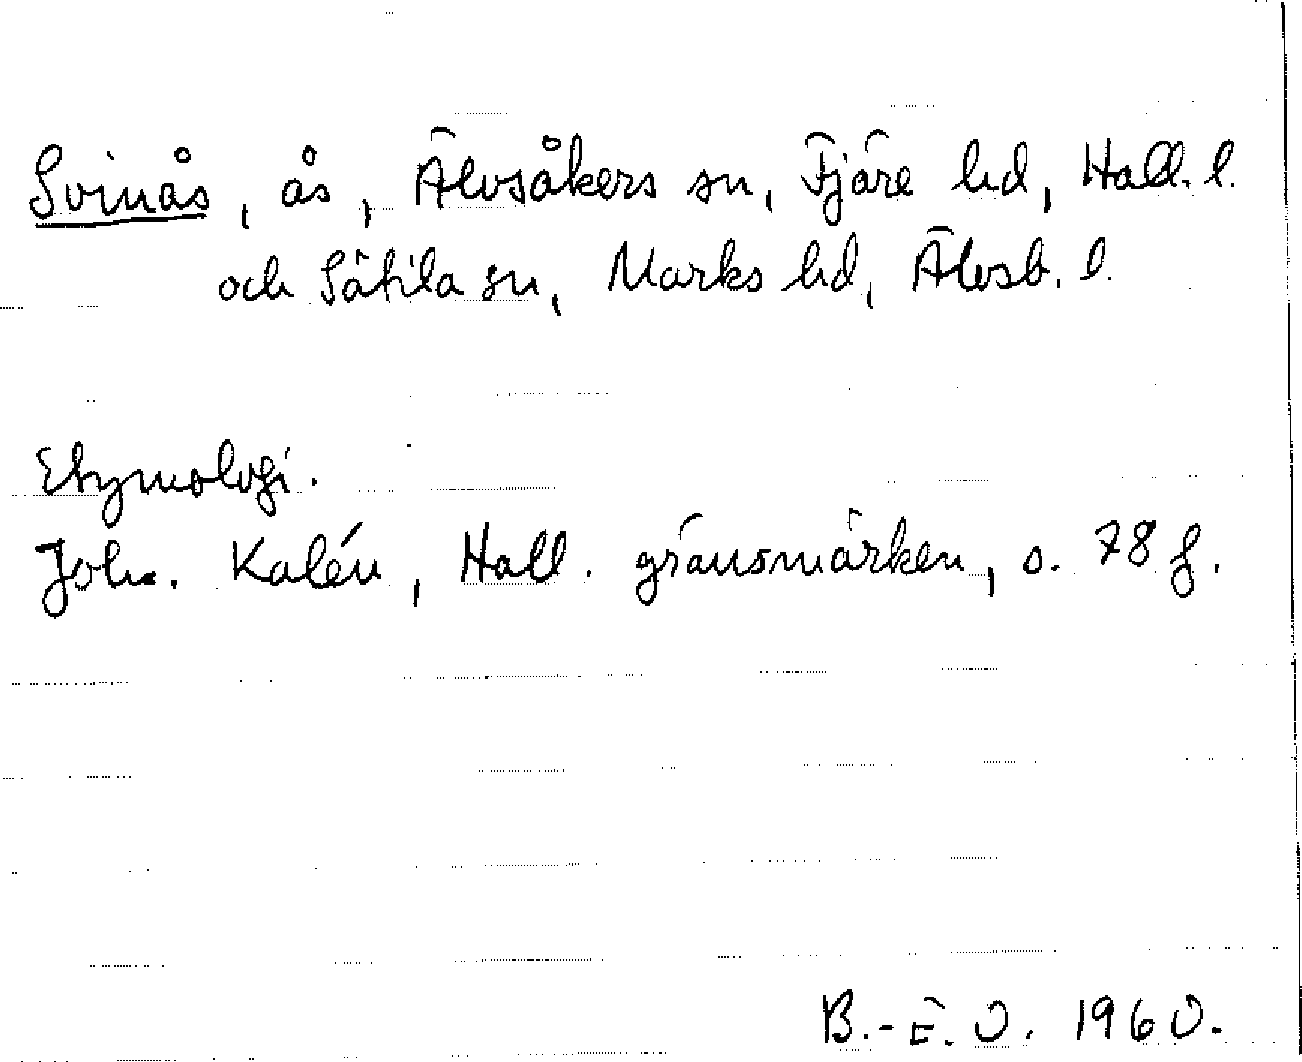 Svinås, ås, Älvsåkers sn, Fjäre hd, Hall. l.
och Sätila sn, Marks hd, Älvsb. l.
Etymologi.
Joh. Kalén, Hall. gränsmärken, s. 78 f.
B.-E. O. 1960.